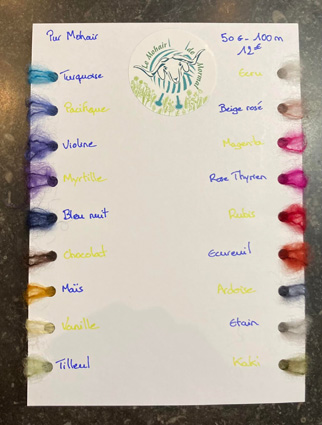 Pur Mohair
50g - 100m
12€
Le Mohair
Turquoise
Ecru
Pacifique
Beige rosé
Violine
Magenta
Myrtille
Rose Thyrien
Bleu nuit
Rubis
Chocolat
Ecureuil
Maïs
Ardoise
Vanille
Etain
Tilleul
Kaki